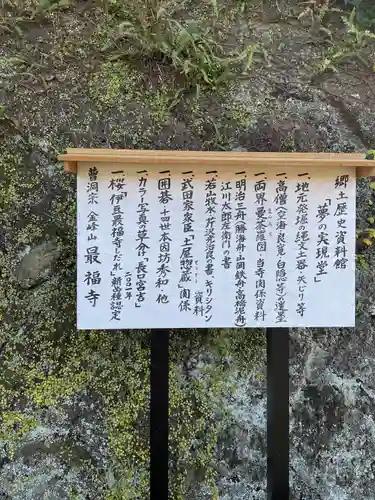 郷土歴史資料館
「夢の実現堂」
一、地元発掘の縄文土器・矢じり 等
一、高僧(空海・良寛・白隠等)の遺墨
一、両界曼荼羅図・当寺関係資料
一、明治三舟(勝海舟・山岡鉄舟・高橋泥舟)
江川太郎左衛門の書
一、若山牧水・芹沢光治良の書、キリシタン資料
一、式田家家臣「土屋惣蔵」関係
一、囲碁 十四世本因坊秀和 他
一、カラー写真の草分け「長口宮吉」
一、桜「伊豆最福寺しだれ」新品種認定
二〇二一年
曹洞宗 金峰山 最福寺